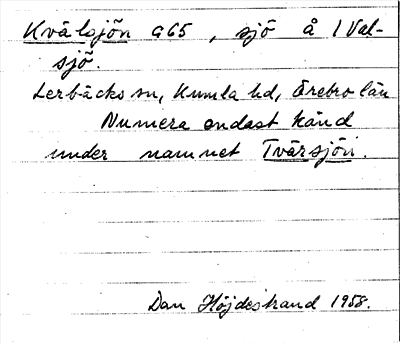 Kvälsjön G65, sjö å 1 Val-
sjö.
Lerbäcks sn, Kumla hd, Örebro län
Numera endast känd
under namnet Tvärsjön.
Dan Höjdestrand 1958.